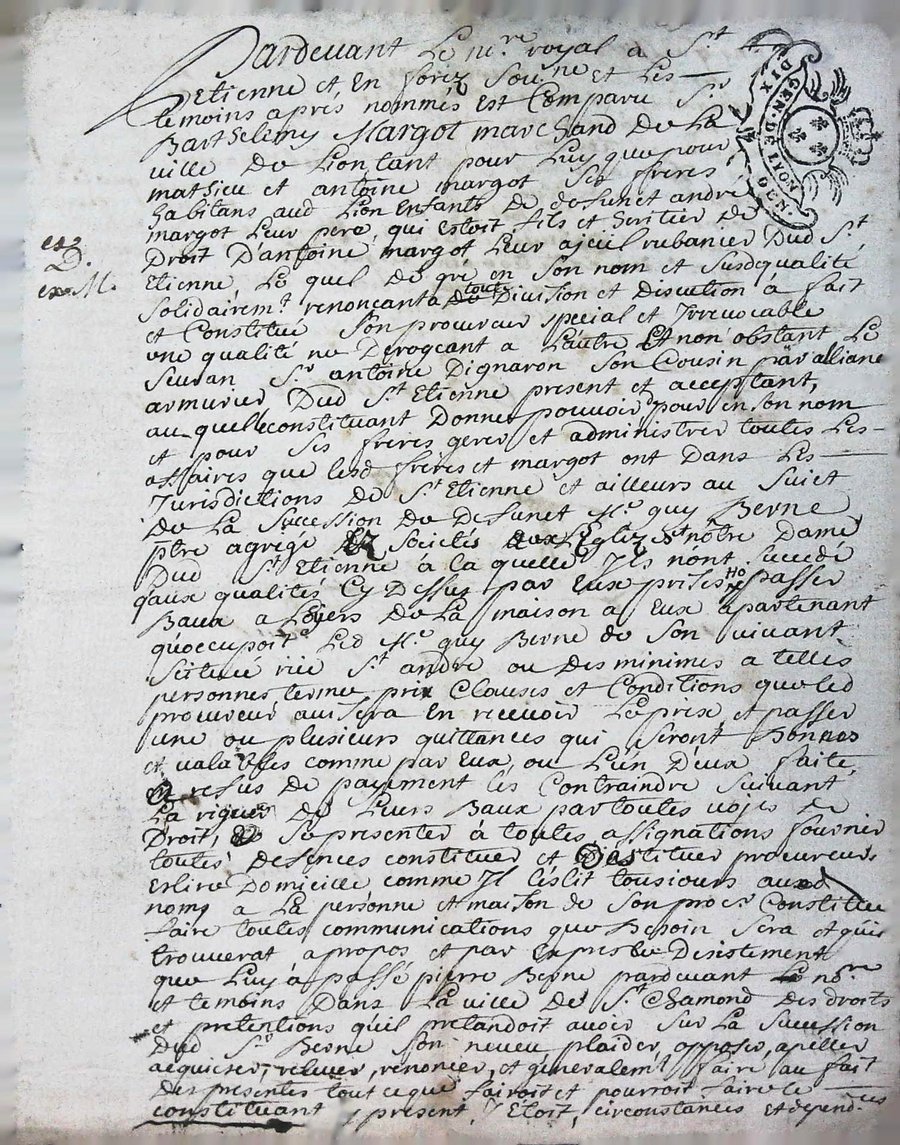 Pardevant Le nre royal a St
Etienne et En forez Sou.ne et Les
temoins apres nommés Est Comparu Sr
Barthelemy Margot marchand De La
ville De Lion tant pour Luy que pour
mathieu et antoine margot Ses freres
habitans aud Lion Enfants De defunct andré
margot Leur pere, qui estoit fils et heritier de
Droit D'antoine margot Leur ajeul rubanier Dud St
Etienne, Le quel de gré en Son nom et Susd qualité
Solidairemt renoncant a toute Division et discution à fait
et Constitué Son procureur special et Irrevocable
une qualité ne Derogeant a L'autre Et non obstant Le
Sr antoine Dignaron Son Cousin par alliane
armurier Dud St Etienne present et acceptant,
au quel le constituant Donne pouvoir pour en son nom
et pour Ses freres gerer et administrer toutes Les
affaires que lesd freres et margot ont Dans Les
Jurisdictions de St Etienne et ailleurs au Suiet
De La Succession De Defunct Me guy Berne
ptre agrégé Societés Eglize nôtre Dame
Dud St Etienne à la quelle Ils n'ont Succedé
qaux qualités Cy Dessus par Eux prises passer
Baux a Loyers De La maison a Eux apartenant
qu'occupoit Led Me guy Berne de Son vivant
Scituée rüe St andré ou Des minimes a telles
personnes terme prix Clauses et Conditions que led
procureur avisera En recevoir Le prix, et passer
une ou plusieurs quittances qui Seront Bonnes
et valables comme par Eux ou L'un D'eux faite
refus de payement les Contraindre Suivant
La rigueur de Leurs Baux par toutes voyes de
Droit, Se presenter à toutes assignations fournir
toutes defences constituer et Destituer procureurs
Eslire Domicille comme Il L'eslit tousiours
noms a La personne et maison de Son procr Constitué
faire toutes communications que Besoin Sera et quil
trouverat a propos et par Expres Le Desistement
que Luy a passé pierre Berne pardevant nre
et temoins Dans La ville de St Chamond Des droits
et pretentions qu'il pretandoit avoir Sur La Sucession
Dud Sr Berne Son neveu plaider, opposer, apeller
acquiecer, relever, renoncer, et generalemt faire au fait
Des presentes tout ce que fairoit et pourroit faire le
constituant present y Etoit, circonstances et depend.ces
DIX
GEN. DE LYON
DEN.